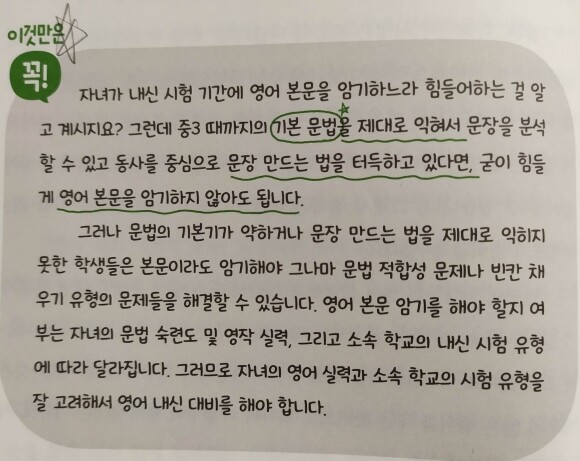 이것만은
꼭!
자녀가 내신 시험 기간에 영어 본문을 암기하느라 힘들어하는 걸 알
고 계시지요? 그런데 중3 때까지의 기본 문법을 제대로 익혀서 문장을 분석
할 수 있고 동사를 중심으로 문장 만드는 법을 터득하고 있다면, 굳이 힘들
게 영어 본문을 암기하지 않아도 됩니다.
그러나 문법의 기본기가 약하거나 문장 만드는 법을 제대로 익히지
못한 학생들은 본문이라도 암기해야 그나마 문법 적합성 문제나 빈칸 채
우기 유형의 문제들을 해결할 수 있습니다. 영어 본문 암기를 해야 할지 여
부는 자녀의 문법 숙련도 및 영작 실력, 그리고 소속 학교의 내신 시험 유형
에 따라 달라집니다. 그러므로 자녀의 영어 실력과 소속 학교의 시험 유형을
잘 고려해서 영어 내신 대비를 해야 합니다.